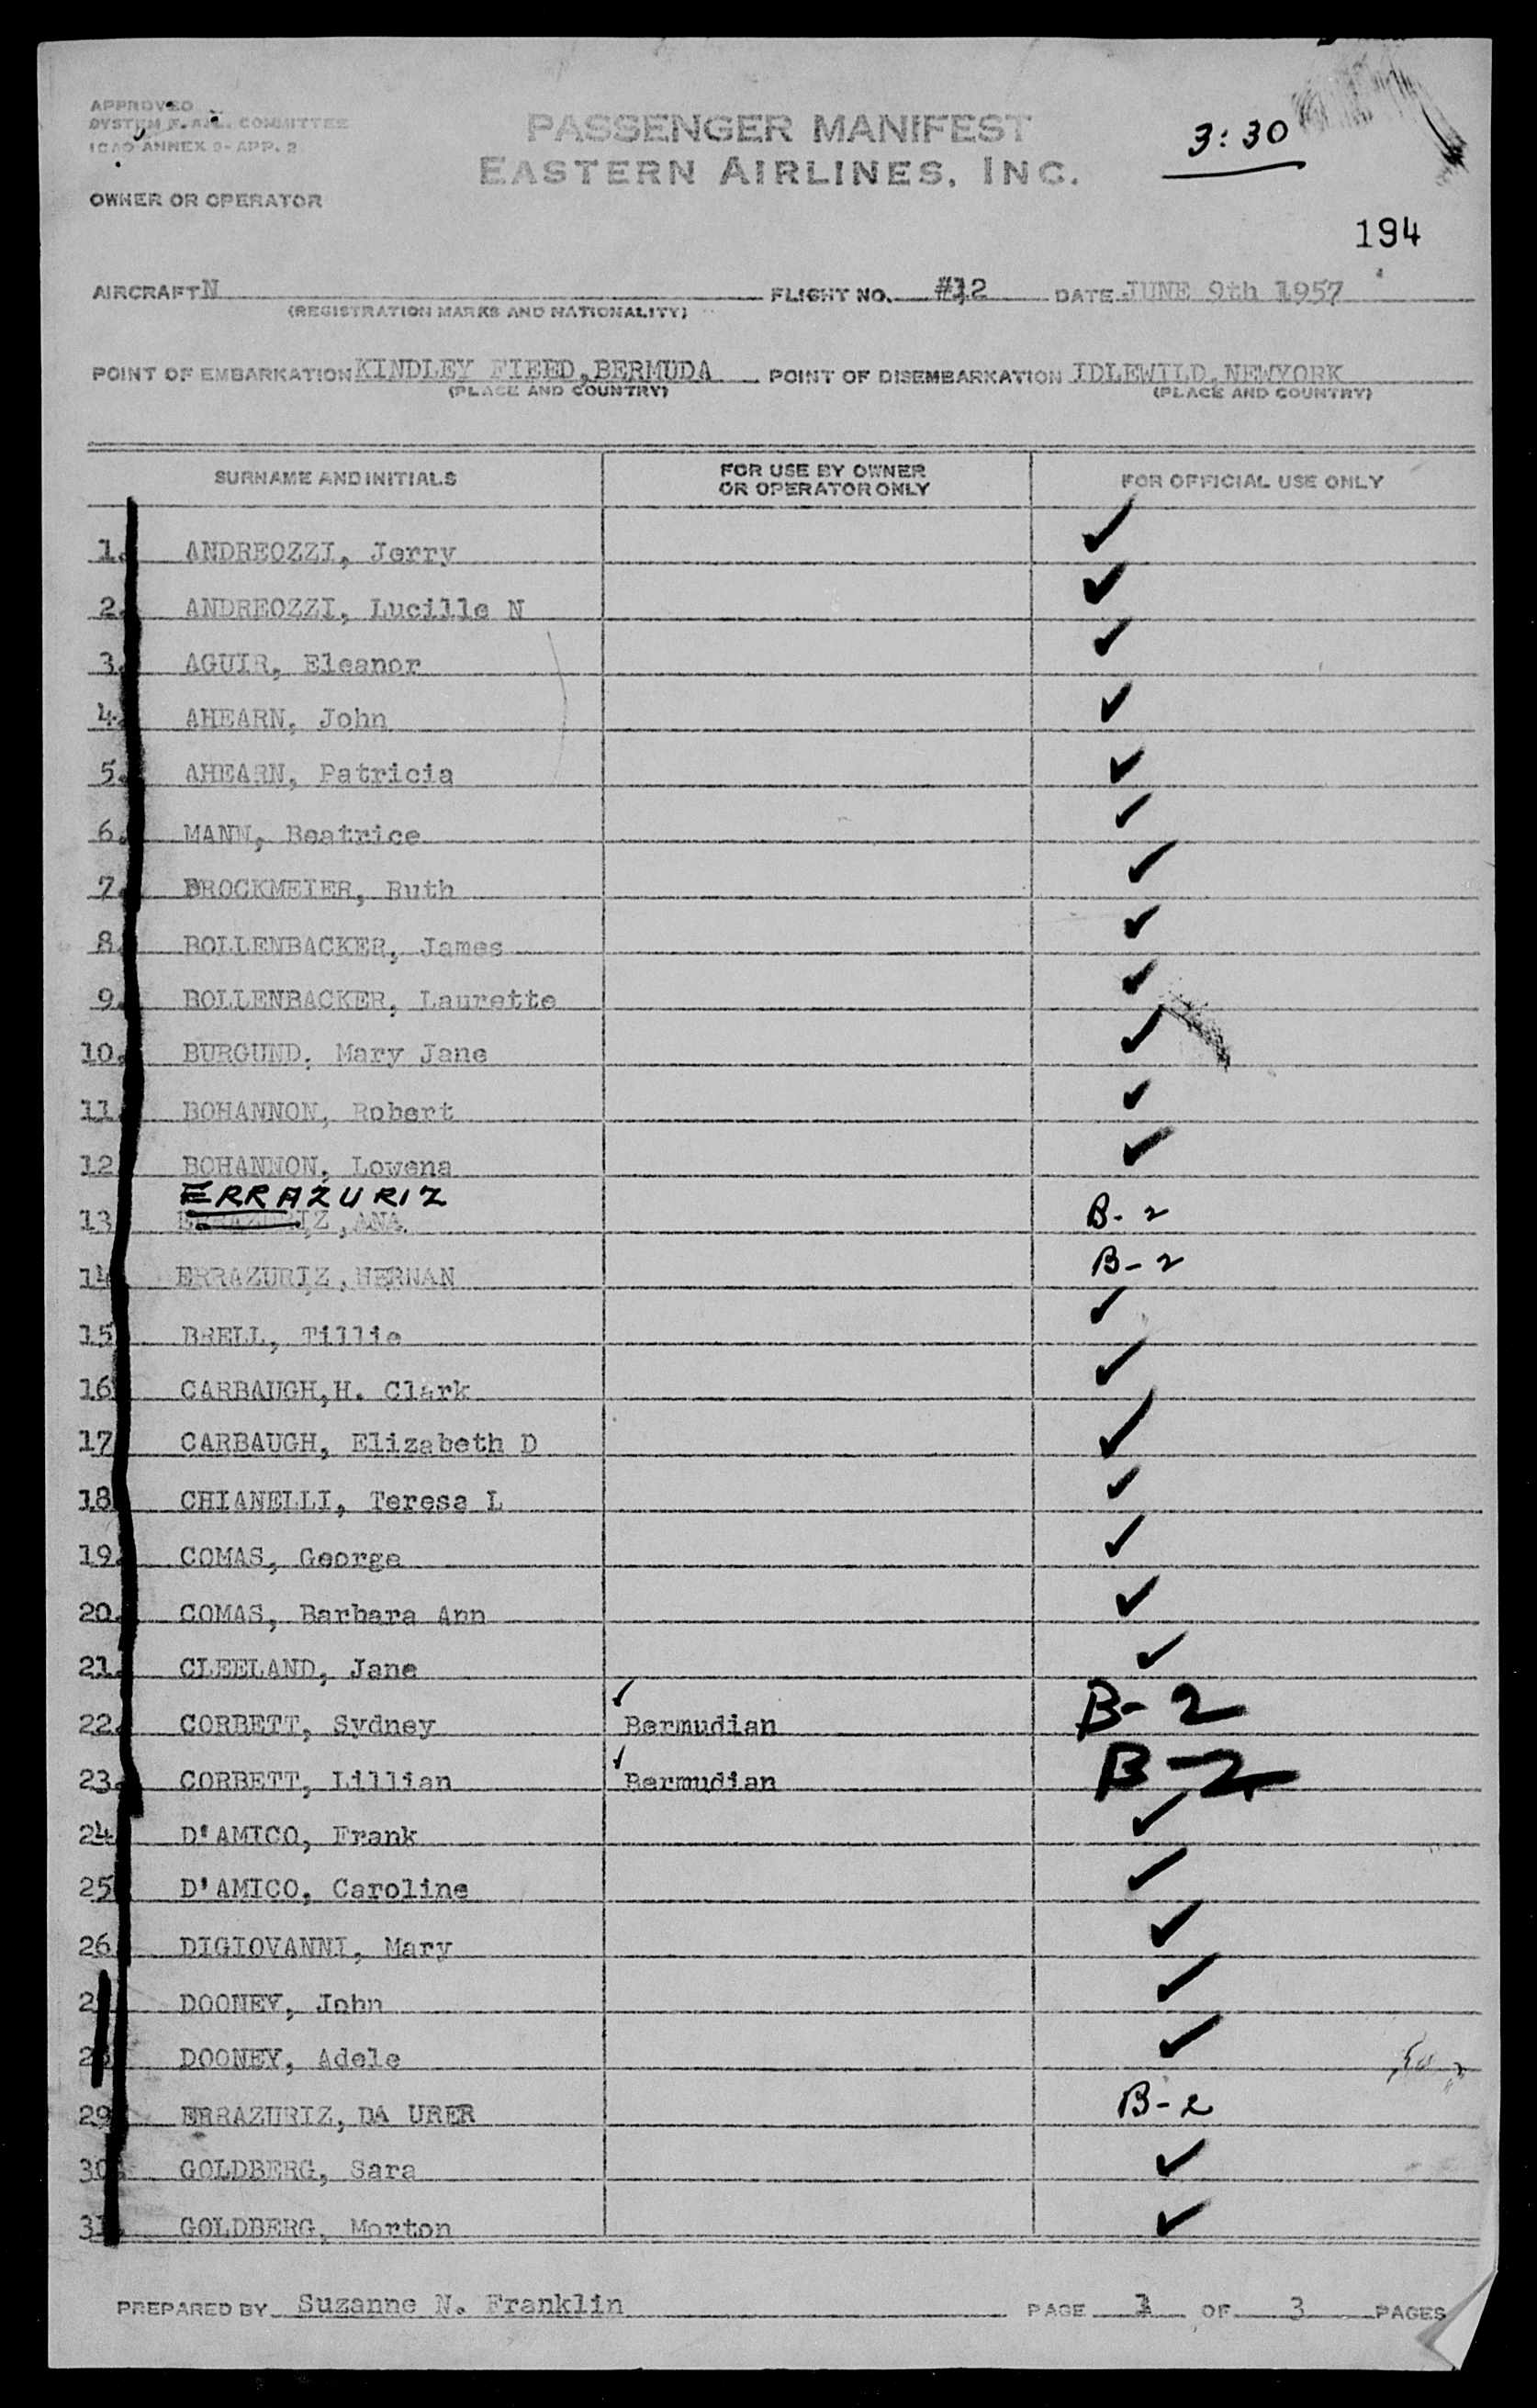 APPROVED
SYSTEM F.A.L. COMMITTEE
ICAO ANNEX 9- APP. 2
PASSENGER MANIFEST
EASTERN AIRLINES, INC.
3:30
OWNER OR OPERATOR
194
AIRCRAFT N FLIGHT NO. #12 DATE JUNE 9th 1957
(REGISTRATION MARKS AND NATIONALITY)
POINT OF EMBARKATION KINDLEY FIEED,BERMUDA POINT OF DISEMBARKATION IDLEWILD,NEWYORK
(PLACE AND COUNTRY) (PLACE AND COUNTRY)
SURNAME AND INITIALS FOR USE BY OWNER OR OPERATOR ONLY FOR OFFICIAL USE ONLY
1. ANDREOZZI, Jerry ✓
2. ANDREOZZI, Lucille N ✓
3. AGUIR, Eleanor ✓
4. AHEARN, John ✓
5. AHEARN, Patricia ✓
6. MANN, Beatrice ✓
7. BROCKMEIER, Ruth ✓
8. BOLLENBACKER, James ✓
9. BOLLENBACKER, Laurette ✓
10. BURGUND, Mary Jane ✓
11. BOHANNON, Robert ✓
12. BOHANNON, Lowena ✓
ERRAZURIZ
13 ERRAZURIZ, ANA B-2
14 ERRAZURIZ, HERNAN B-2
15 BRELL, Tillie ✓
16 CARBAUGH,H. Clark ✓
17 CARBAUGH, Elizabeth D ✓
18 CHIANELLI, Teresa L ✓
19. COMAS, George ✓
20. COMAS, Barbara Ann ✓
21. CLEELAND, Jane ✓
22. CORBETT, Sydney ✓ Bermudian B-2
23. CORBETT, Lillian ✓ Bermudian B-2
24 D'AMICO, Frank ✓
25 D'AMICO, Caroline ✓
26 DIGIOVANNI, Mary ✓
2 DOONEY, John ✓
28 DOONEY, Adele ✓
29 ERRAZURIZ, DA URER B-2
30. GOLDBERG, Sara ✓
31. GOLDBERG, Morton ✓
PREPARED BY Suzanne N. Franklin PAGE 1 OF 3 PAGES